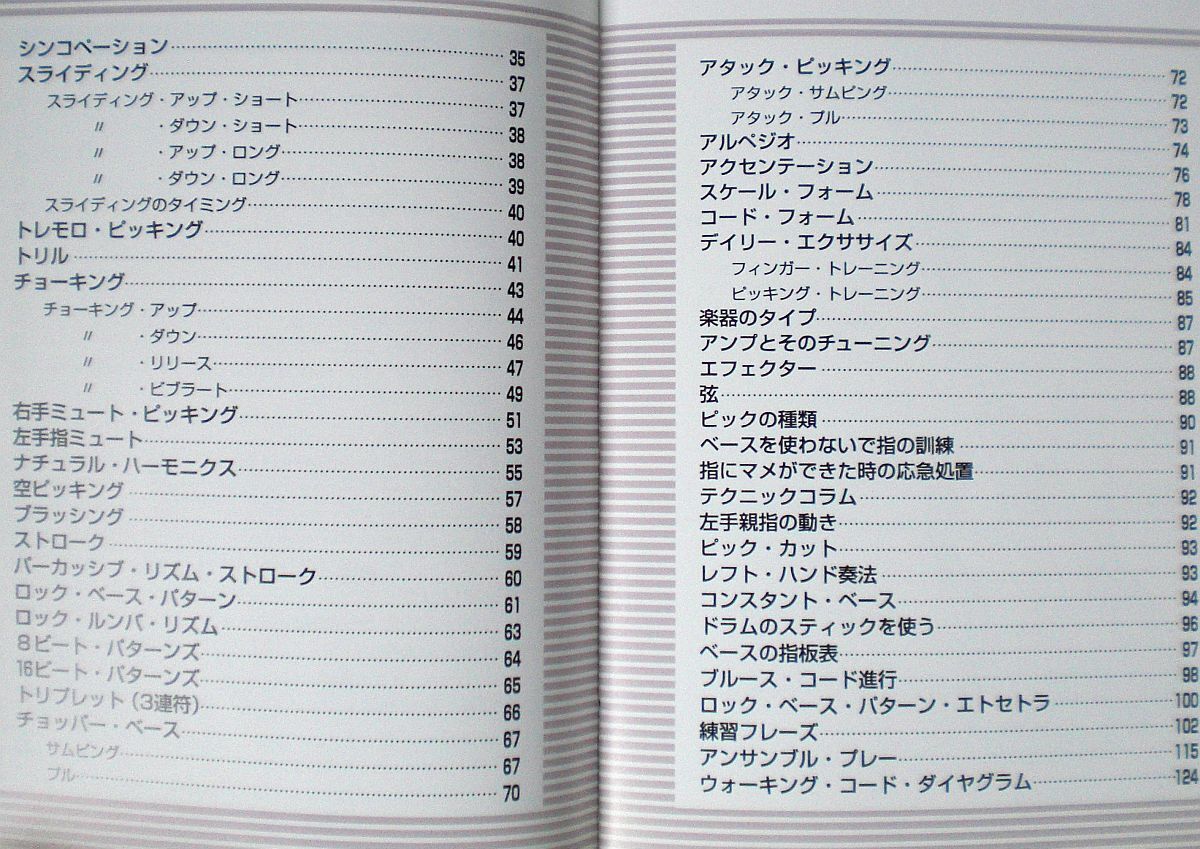 シンコペーション 35
スライディング 37
スライディング・アップ・ショート 37
〃 ・ダウン・ショート 38
〃 ・アップ・ロング 38
〃 ・ダウン・ロング 39
スライディングのタイミング 40
トレモロ・ピッキング 40
トリル 41
チョーキング 43
チョーキング・アップ 44
〃 ・ダウン 46
〃 ・リリース 47
〃 ・ビブラート 49
右手ミュート・ピッキング 51
左手指ミュート 53
ナチュラル・ハーモニクス 55
空ピッキング 57
ブラッシング 58
ストローク 59
パーカッシブ・リズム・ストローク 60
ロック・ベース・パターン 61
ロック・ルンバ・リズム 63
8ビート・パターンズ 64
16ビート・パターンズ 65
トリプレット(3連符) 66
チョッパー・ベース 67
サムピング 67
プル 70
アタック・ピッキング 72
アタック・サムピング 72
アタック・プル 73
アルペジオ 74
アクセンテーション 76
スケール・フォーム 78
コード・フォーム 81
デイリー・エクササイズ 84
フィンガー・トレーニング 84
ピッキング・トレーニング 85
楽器のタイプ 87
アンプとそのチューニング 87
エフェクター 88
弦 88
ピックの種類 90
ベースを使わないで指の訓練 91
指にマメができた時の応急処置 91
テクニックコラム 92
左手親指の動き 92
ピック・カット 93
レフト・ハンド奏法 93
コンスタント・ベース 94
ドラムのスティックを使う 96
ベースの指板表 97
ブルース・コード進行 98
ロック・ベース・パターン・エトセトラ 100
練習フレーズ 102
アンサンブル・プレー 115
ウォーキング・コード・ダイヤグラム 124